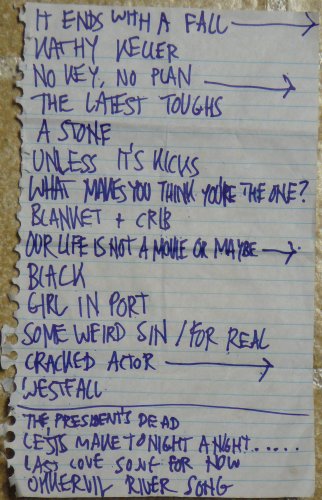 IT ENDS WITH A FALL →
KATHY KELLER
NO KEY, NO PLAN →
THE LATEST TOUGHS
A STONE
UNLESS IT'S KICKS
WHAT MAKES YOU THINK YOU'RE THE ONE?
BLANKET + CRIB
OUR LIFE IS NOT A MOVIE OR MAYBE →
BLACK
GIRL IN PORT
SOME WEIRD SIN / FOR REAL
CRACKED ACTOR →
WESTFALL
THE PRESIDENT'S DEAD
LET'S MAKE TONIGHT A NIGHT......
LAST LOVE SONG FOR NOW
OKKERVIL RIVER SONG